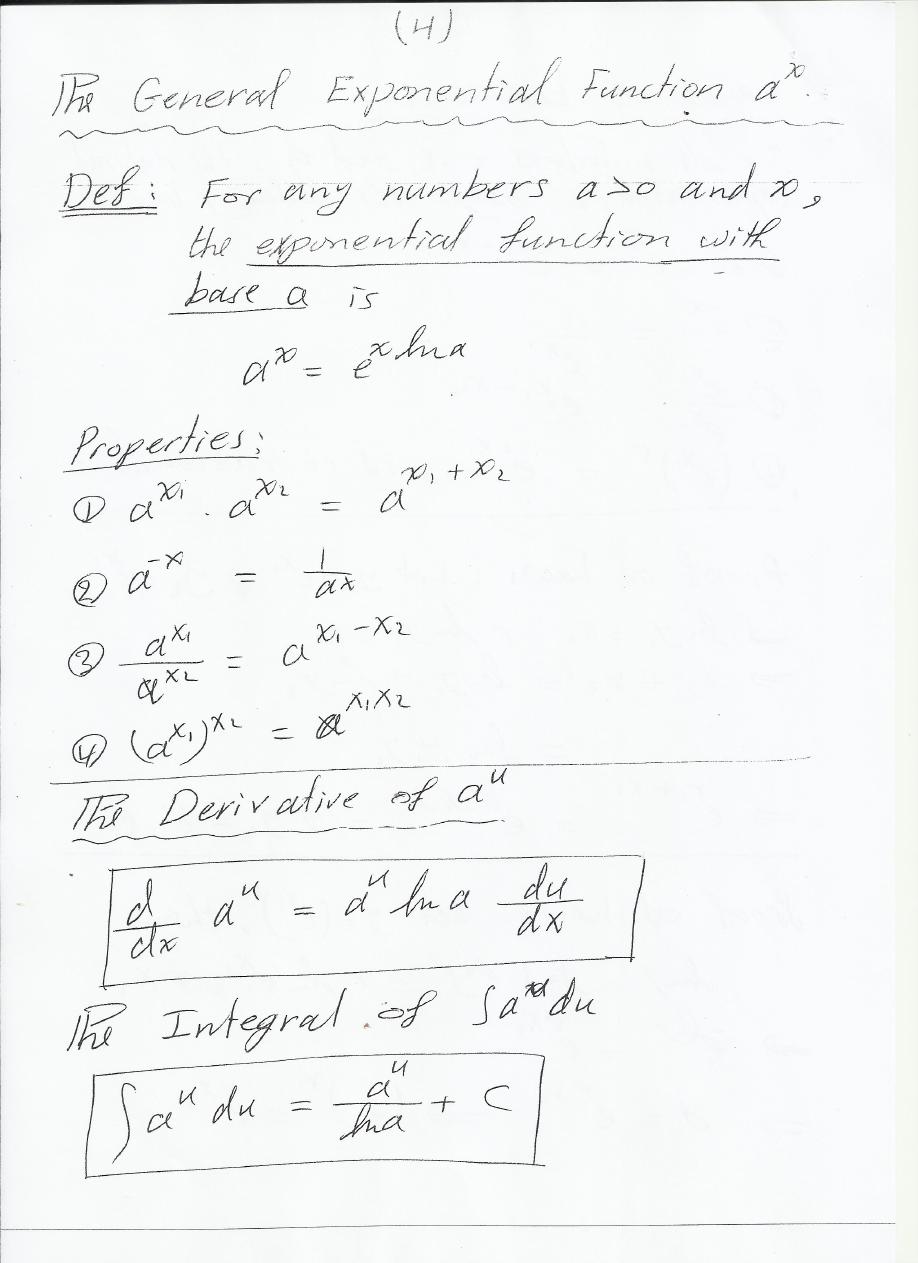 (4)
The General Exponential Function a^x.
Def: For any numbers a>0 and x,
the exponential function with
base a is
a^x = e^{x ln a}
Properties:
① a^{x₁} . a^{x₂} = a^{x₁+x₂}
② a^{-x} = 1/a^x
③ a^{x₁}/a^{x₂} = a^{x₁-x₂}
④ (a^{x₁})^{x₂} = a^{x₁x₂}
The Derivative of a^u
d/dx a^u = a^u ln a du/dx
The Integral of ∫a^u du
∫a^u du = a^u/ln a + C